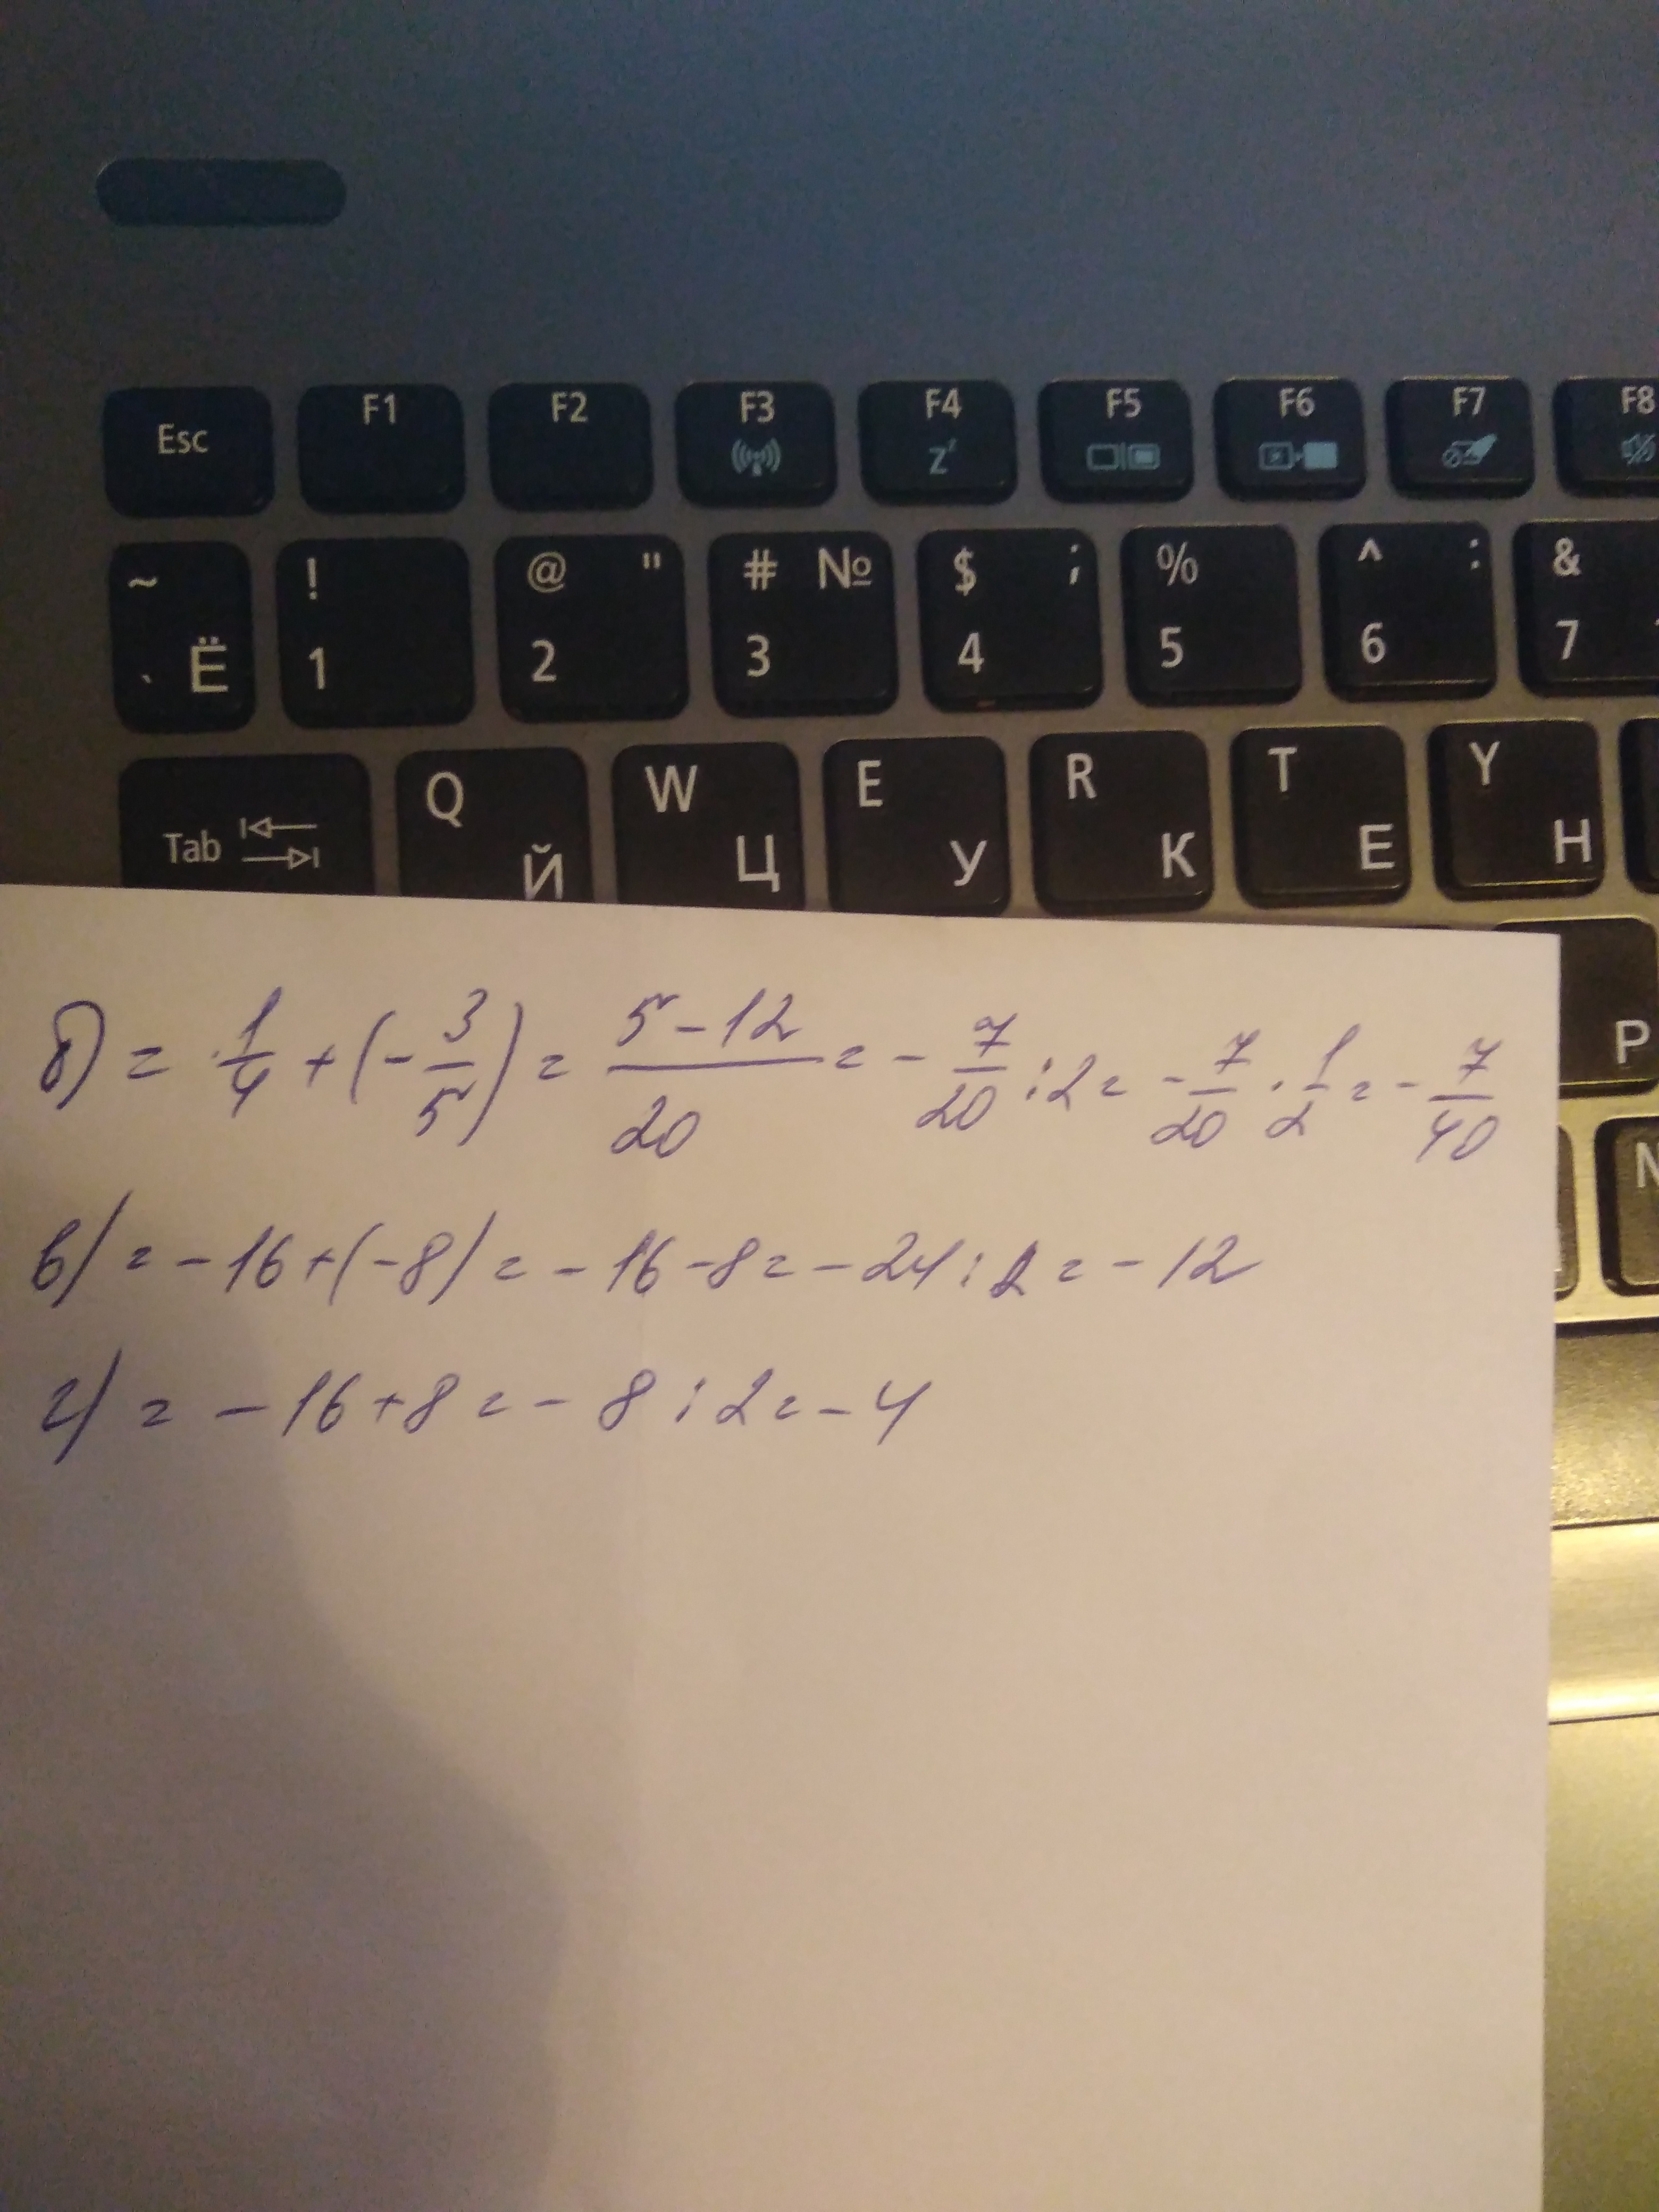 Esc F1 F2 F3 F4 zᶻ F5 F6 F7 F8
~ ` Ё ! 1 @ " 2 # № 3 $ ; 4 % 5 ^ : 6 & 7
Tab Q Й W Ц E У R К T Е Y Н
Р
б) = 1/4 + (- 3/5) = (5-12)/20 = - 7/20 : 2 = - 7/20 · 1/2 = - 7/40
N
в) = - 16 + (-8) = - 16 - 8 = - 24 : 2 = - 12
г) = - 16 + 8 = - 8 : 2 = - 4